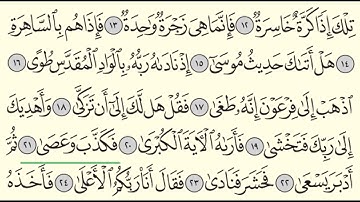 تِلْكَ إِذًا كَرَّةٌ خَاسِرَةٌ ١٢ فَإِنَّمَا هِيَ زَجْرَةٌ وَاحِدَةٌ ١٣ فَإِذَا هُم بِالسَّاهِرَةِ
١٤ هَلْ أَتَىٰكَ حَدِيثُ مُوسَىٰٓ ١٥ إِذْ نَادَىٰهُ رَبُّهُۥ بِالْوَادِ الْمُقَدَّسِ طُوًى ١٦
اذْهَبْ إِلَىٰ فِرْعَوْنَ إِنَّهُۥ طَغَىٰ ١٧ فَقُلْ هَل لَّكَ إِلَىٰٓ أَن تَزَكَّىٰ ١٨ وَأَهْدِيَكَ
إِلَىٰ رَبِّكَ فَتَخْشَىٰ ١٩ فَأَرَىٰهُ الْآيَةَ الْكُبْرَىٰ ٢٠ فَكَذَّبَ وَعَصَىٰ ٢١ ثُمَّ
أَدْبَرَ يَسْعَىٰ ٢٢ فَحَشَرَ فَنَادَىٰ ٢٣ فَقَالَ أَنَا۠ رَبُّكُمُ الْأَعْلَىٰ ٢٤ فَأَخَذَهُ